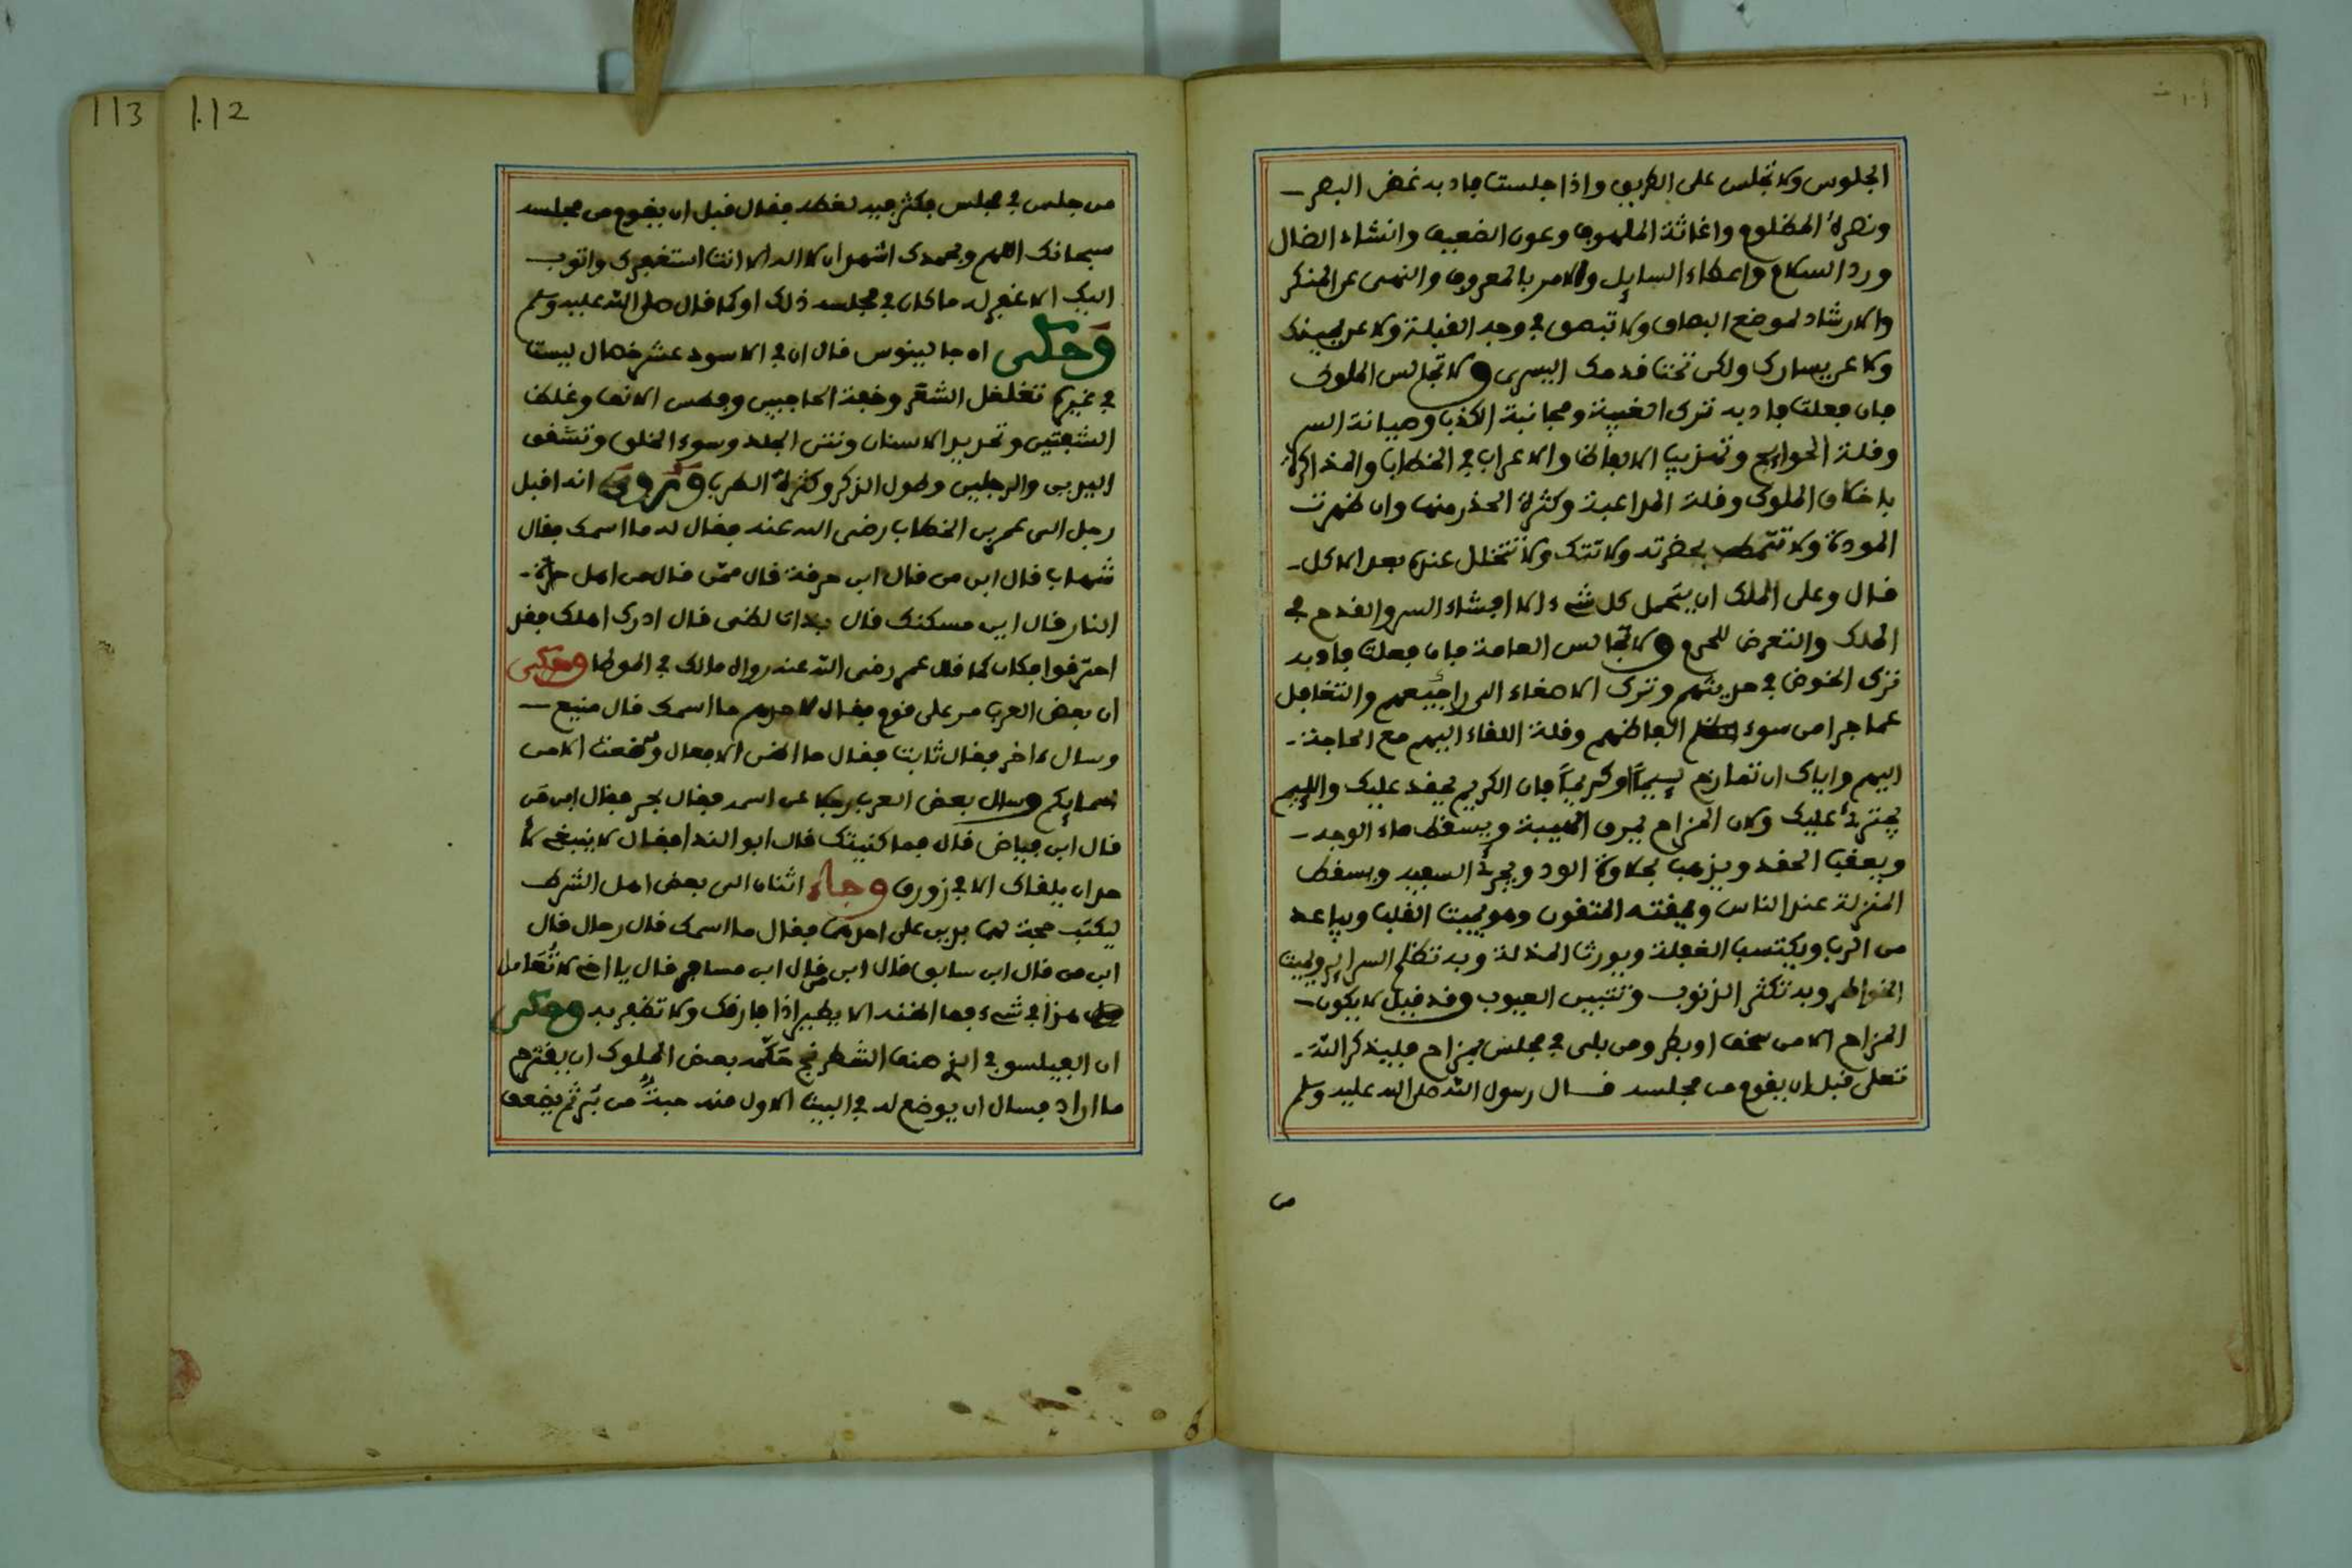 الجلوس ولا تجلس على الطريق واذا جلست فادبه غض البصر
ونصرة المظلوم واغاثة الملهوف وعون الضعيف وانشاد الضال
ورد السلام واعطاء السايل والامر بالمعروف والنهى عن المنكر
والارشاد لموضع البصاق ولا تبصق في وجه القبلة ولا عن يمينك
ولا عن يسارك ولكن تحت قدمك اليسرى ولا تجالس الملوك
فان فعلت فادبه ترك الغيبة ومجانبة الكذب وصيانة السر
وقلة الحوايج وتهذيب الالفاظ والاعراب في الخطاب والمذاكرة
باخلاق الملوك وقلة المداعبة وكثرة الحذر منهم وان ظهرت
المودة ولا تتجشأ بحضرته ولا تتك ولا تتخلل عنده بعد الاكل
قال وعلى الملك ان يتحمل كل شيء الا افشاء السر والقدح في
الملك والتعرض للحرم ولا تجالس العامة فان فعلت فادبه
ترك الخوض في حديثهم وترك الاصغاء الى اراجيفهم والتغافل
عما جرا من سوء الفاظهم وقلة اللقاء اليهم مع الحاجة
اليهم واياك ان تمازح لييما او كريما فان الكريم يحقد عليك واللييم
يجترئ عليك ولان المزاح يخرق الهيبة ويسقط ماء الوجه
ويعقب الحقد ويذهب بحلاوة الود ويجرئ السفيه ويسقط
المنزلة عند الناس ويمقته المتقون وهو يميت القلب ويباعد
من الرب ويكتسب الغفلة ويورث المذلة وبه تظلم السراير ويميت
الخواطر وبه تكثر الذنوب وتتبين العيوب وقد قيل لا يكون
المزاح الا من سخف او بطر ومن بلى في مجلس بمزاح فليذكر الله
تعلى قبل ان يقوم من مجلسه قال رسول الله صلى الله عليه وسلم
من
من جلس في مجلس فكثر فيه لغطه فقال قبل ان يقوم من مجلسه
سبحانك اللهم وبحمدك اشهد ان لا اله الا انت استغفرك واتوب
اليك الا غفر له ما كان في مجلسه ذلك او كما قال صلى الله عليه وسلم
وحكى ان جالينوس قال ان في الاسود عشر خصال ليست
في غيره تفلفل الشعر وخفة الحاجبين وفطس الانف وغلظ
الشفتين وتحديد الاسنان ونتن الجلد وسوء الخلق وتشقق
اليدين والرجلين وطول الذكر وكثرة الطرب وروى انه اقبل
رجل الى عمر بن الخطاب رضى الله عنه فقال له ما اسمك فقال
شهاب قال ابن من قال ابن حرقة قال ممن قال من اهل حرة
النار قال اين مسكنك قال بذات لظى قال ادرك اهلك فقد
احترقوا فكان كما قال عمر رضى الله عنه رواه مالك في الموطا وحكى
ان بعض العرب مر على قوم فقال لاحدهم ما اسمك قال منيع
وسال ءاخر فقال ثابت فقال ما اظن الاقفال وضعت الا من
اسمايكم وسال بعض العرب رجلا عن اسمه فقال بحر فقال ابن من
قال ابن فياض قال فما كنيتك قال ابو الندا فقال لا ينبغي لا
حد ان يلقاك الا في زورق وجاء اثنان الى بعض اهل الشرط
ليكتب حجة لهما بدين على احدهما فقال ما اسمك قال رحال قال
ابن من قال ابن سابق قال ابن من قال ابن مسافر قال يا اخي لا تعامل
هذا في شيء فما اظنه الا يطير اذا فارقك ولا تظفر به وحكى
ان الفيلسوف الذي صنف الشطرنج حكمه بعض الملوك ان يقترح
ما اراد فسال ان يوضع له في البيت الاول منه حبة من بر ثم يضعف
112
113